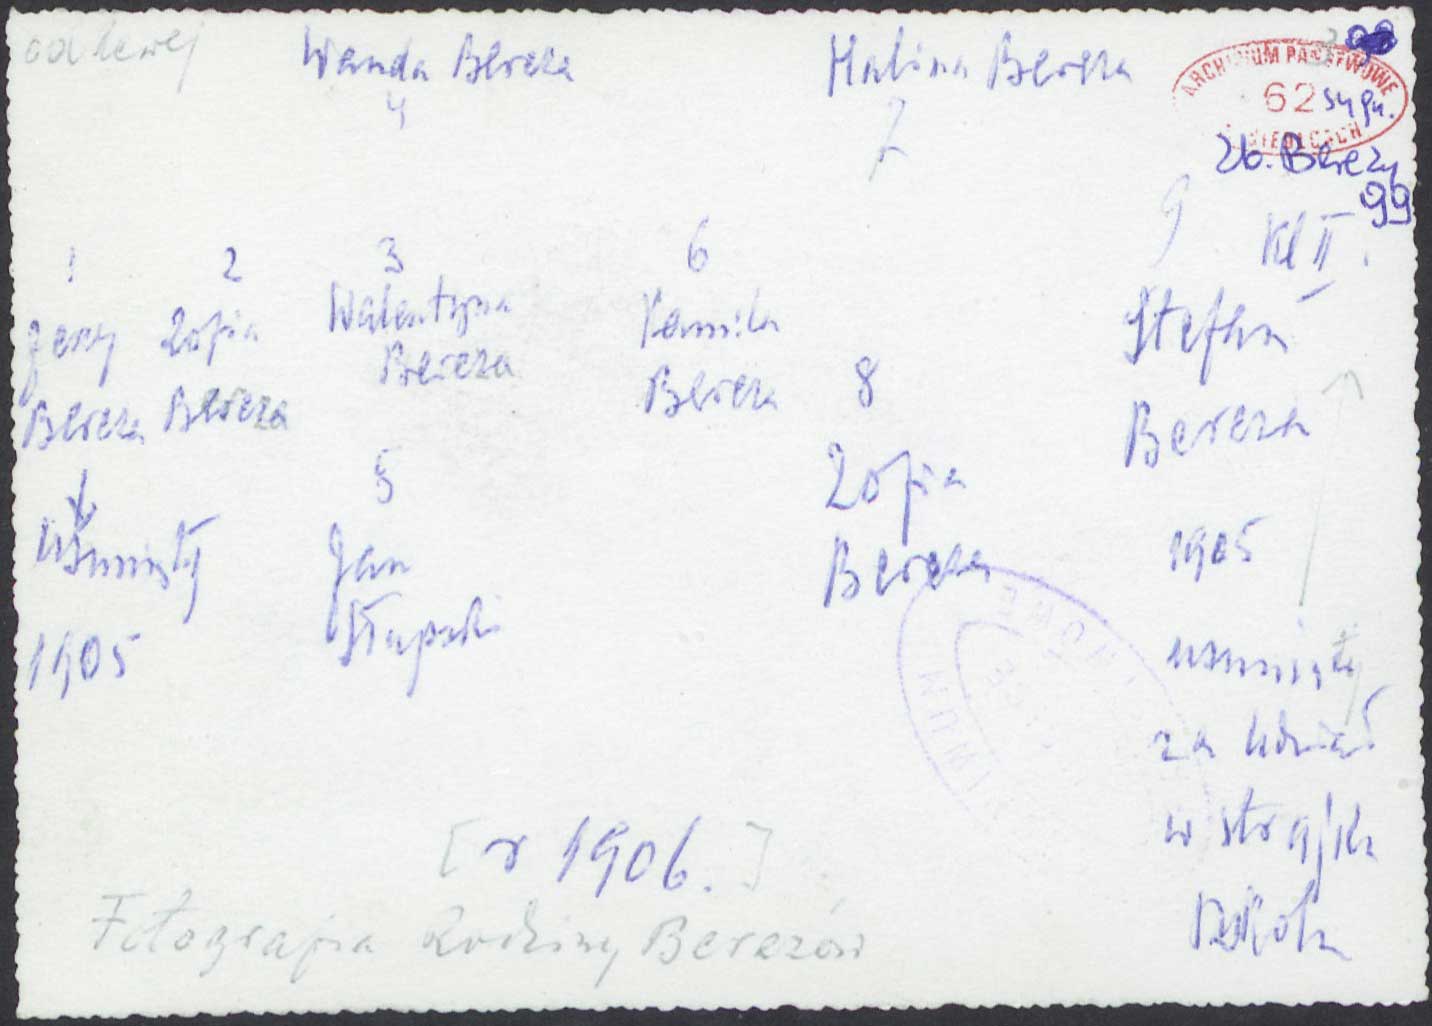 od lewej
Wanda Bereza
4
Halina Bereza
7
ARCHIWUM PAŃSTWOWE
62 sygn.
W SIEDLCACH
Zb. Berezy
99
Kl II.
1
Jerzy
Bereza
usunięty
1905
2
Zofia
Bereza
3
Walentyna
Bereza
5
Jan
Słupski
6
Kamila
Bereza
8
Zofia
Bereza
9
Stefan
Bereza
1905
usunięty
za udział
w strajku
szkoln
[r 1906.]
Fotografia Rodziny Berezów